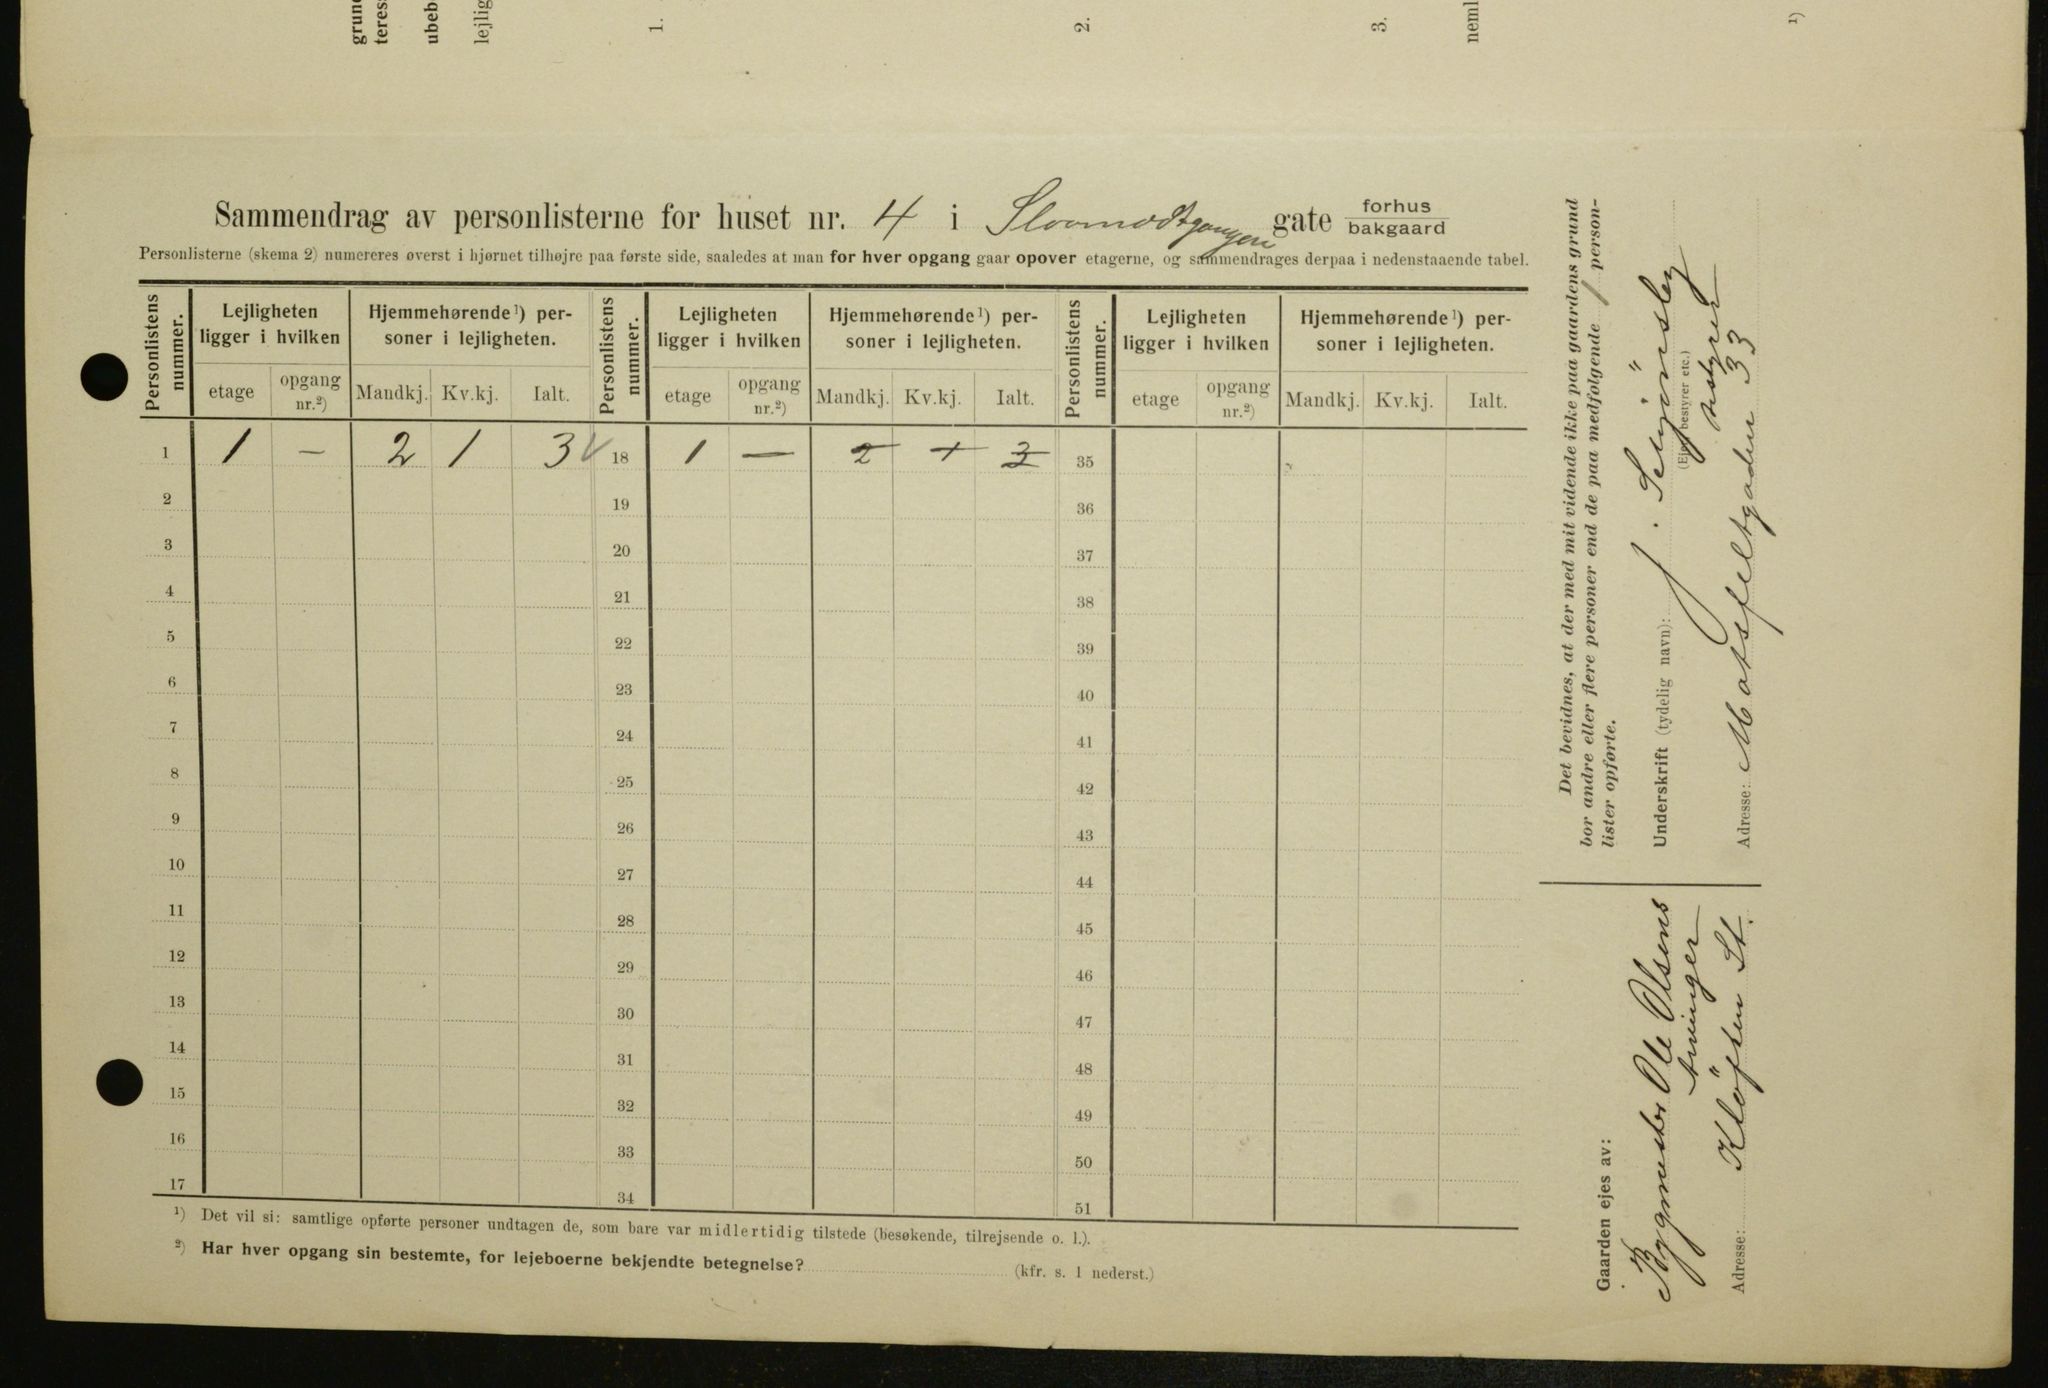 grun
teres
ubeb
lejlig
1.
2.
3.
neml
1)
Sammendrag av personlisterne for huset nr. 4 i gate forhus
bakgaard
Personlisterne (skema 2) numereres øverst i hjørnet tilhøjre paa første side, saaledes at man for hver opgang gaar opover etagerne, og sammendrages derpaa i nedenstaaende tabel.
Personlistens nummer. Lejligheten ligger i hvilken Hjemmehørende ¹) personer i lejligheten. Personlistens nummer. Lejligheten ligger i hvilken Hjemmehørende ¹) personer i lejligheten. Personlistens nummer. Lejligheten ligger i hvilken Hjemmehørende ¹) personer i lejligheten.
etage opgang nr.²) Mandkj. Kv.kj. Ialt. etage opgang nr.²) Mandkj. Kv.kj. Ialt. etage opgang nr.²) Mandkj. Kv.kj. Ialt.
1 1 — 2 1 3 18 1 — 2 1 3 35
2 19 36
3 20 37
4 21 38
5 22 39
6 23 40
7 24 41
8 25 42
9 26 43
10 27 44
11 28 45
12 29 46
13 30 47
14 31 48
15 32 49
16 33 50
17 34 51
¹) Det vil si: samtlige opførte personer undtagen de, som bare var midlertidig tilstede (besøkende, tilrejsende o. l.).
²) Har hver opgang sin bestemte, for lejeboerne bekjendte betegnelse? (kfr. s. 1 nederst.)
Det bevidnes, at der med mit vidende ikke paa gaardens grund
bor andre eller flere personer end de paa medfølgende 1 person-
lister opførte.
Underskrift (tydelig navn): J.
(Ejer, bestyrer etc.)
bestyrer
Adresse: 33
Gaarden ejes av:
Bygmester Ole Olsens
arvinger
Adresse: Kløften St.